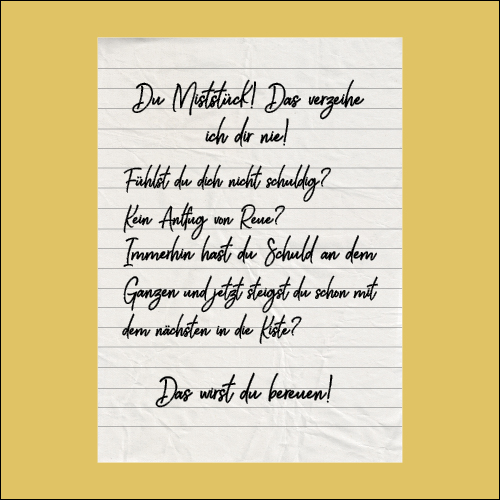 Du Miststück! Das verzeihe
ich dir nie!
Fühlst du dich nicht schuldig?
Kein Anflug von Reue?
Immerhin hast du Schuld an dem
Ganzen und jetzt steigst du schon mit
dem nächsten in die Kiste?
Das wirst du bereuen!